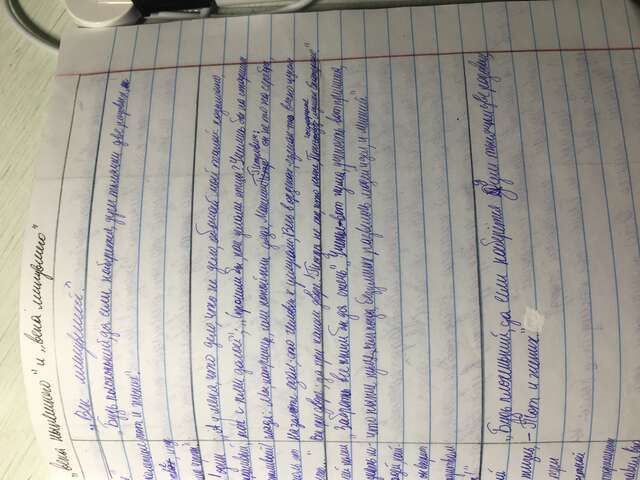 „века нынешнего" и „века минувшего"
„Век минувший".
„Будь плохонький, да если наберется, душ тысячки две, родовых,
тот и жених".
один „А у меня, что дело, что не дело, обычай мой такой: подписано
так с плеч долой"; „Спросили бы, как делали отцы? Учились бы на старших
глядя: Мы, например, или покойник дядя, Максим Петрович: он не то на серебре,
На золоте едал; сто человек к услугам; Весь в орденах;
Век при дворе; да при каком дворе! Тогда не то, что ныне, При государыне служил Екатерине"
„Забрать все книги бы да сжечь". „Ученье - вот чума, ученость вот причина,
что ныне пуще, чем когда, безумных развелось людей, и дел, и мнений."
он
„Будь плохенький, да если наберется Душ тысячки две родовых,
- Тот и жених."
жизни,
при